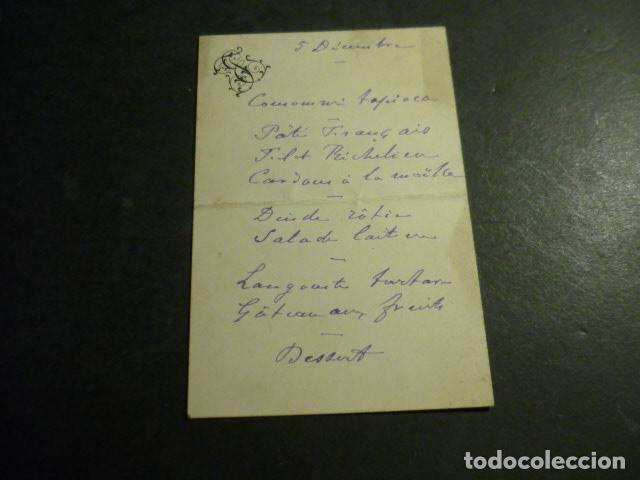 5 Décembre
Consommé tapioca
Pâté Français
Filet Richelieu
Cardons à la moëlle
Dinde rôtie
Salade laitue
Langouste tartare
Gâteau aux fruits
Dessert
todocoleccion.net